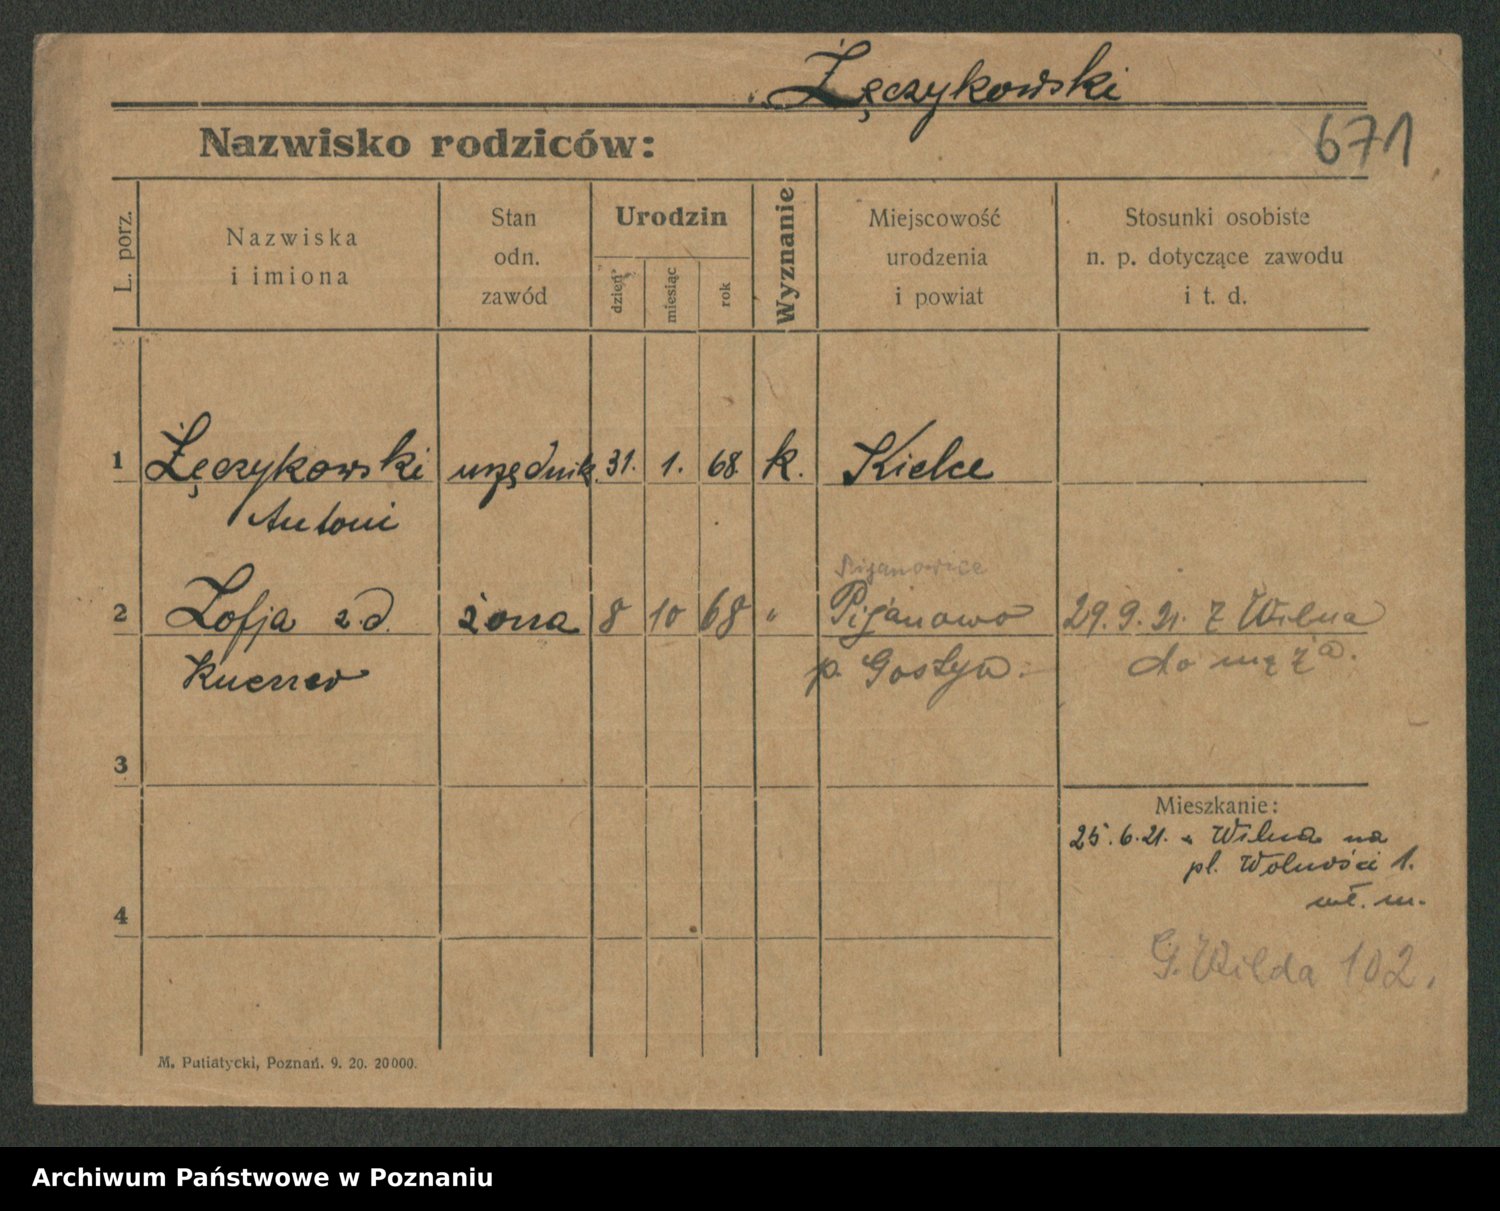 Żęczykowski
Nazwisko rodziców:
671
L. porz.
Nazwiska
i imiona
Stan
odn.
zawód
Urodzin
dzień
miesiąc
rok
Wyznanie
Miejscowość
urodzenia
i powiat
Stosunki osobiste
n. p. dotyczące zawodu
i t. d.
1 Żęczykowski urzędnik. 31. 1. 68. k. Kielce
Antoni
Pijanowice
2 Zofja z.d. żona 8 10 68 " Pijanowo 29.9.21. z Wilna
p. Gostyn. do męża.
3
Mieszkanie:
25.6.21. z Wilna na
pl. Wolności 1.
4
G. Wilda 102.
M. Putiatycki, Poznań. 9. 20. 20000.
Archiwum Państwowe w Poznaniu